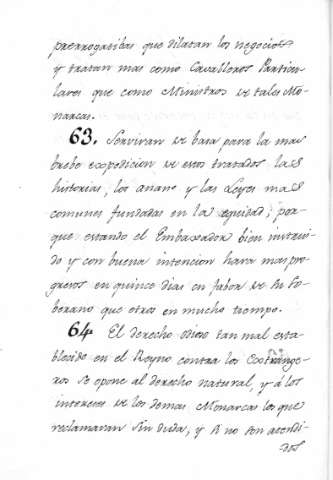 prerrogatibas que dilatan los negocios
y tratan mas como Cavalleros Particu
lares que como Ministros de tales Mo-
narcas.
63. Serviran de basa para la mas
brebe expedicion de estos tratados las
historias, los anane y las Leyes mas
comunes fundadas en la equidad; por
que estando el Embaxador bien instrui-
do y con buena intencion hara mas pro
gresos en quince dias en fabor de su So
berano que otros en mucho tiempo.
64. El derecho odioso tan mal esta-
blecido en el Reyno contra los Extrange-
ros se opone al derecho natural, y á los
intereses de los demas Monarcas los que
reclamaran sin duda, y si no son atendi-
dos